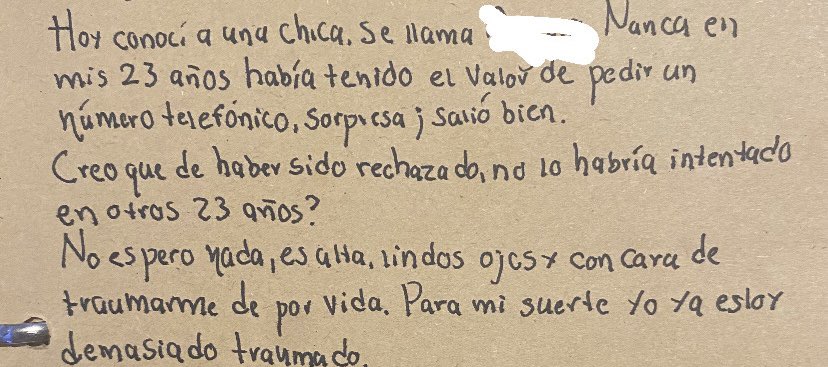 Hoy conocí a una chica. Se llama Nunca en
mis 23 años había tenido el valor de pedir un
número telefónico, sorpresa ¡ salió bien.
Creo que de haber sido rechazado, no lo habría intentado
en otros 23 años?
No espero nada, es alta, lindos ojos y con cara de
traumarme de por vida. Para mi suerte yo ya estoy
demasiado traumado.